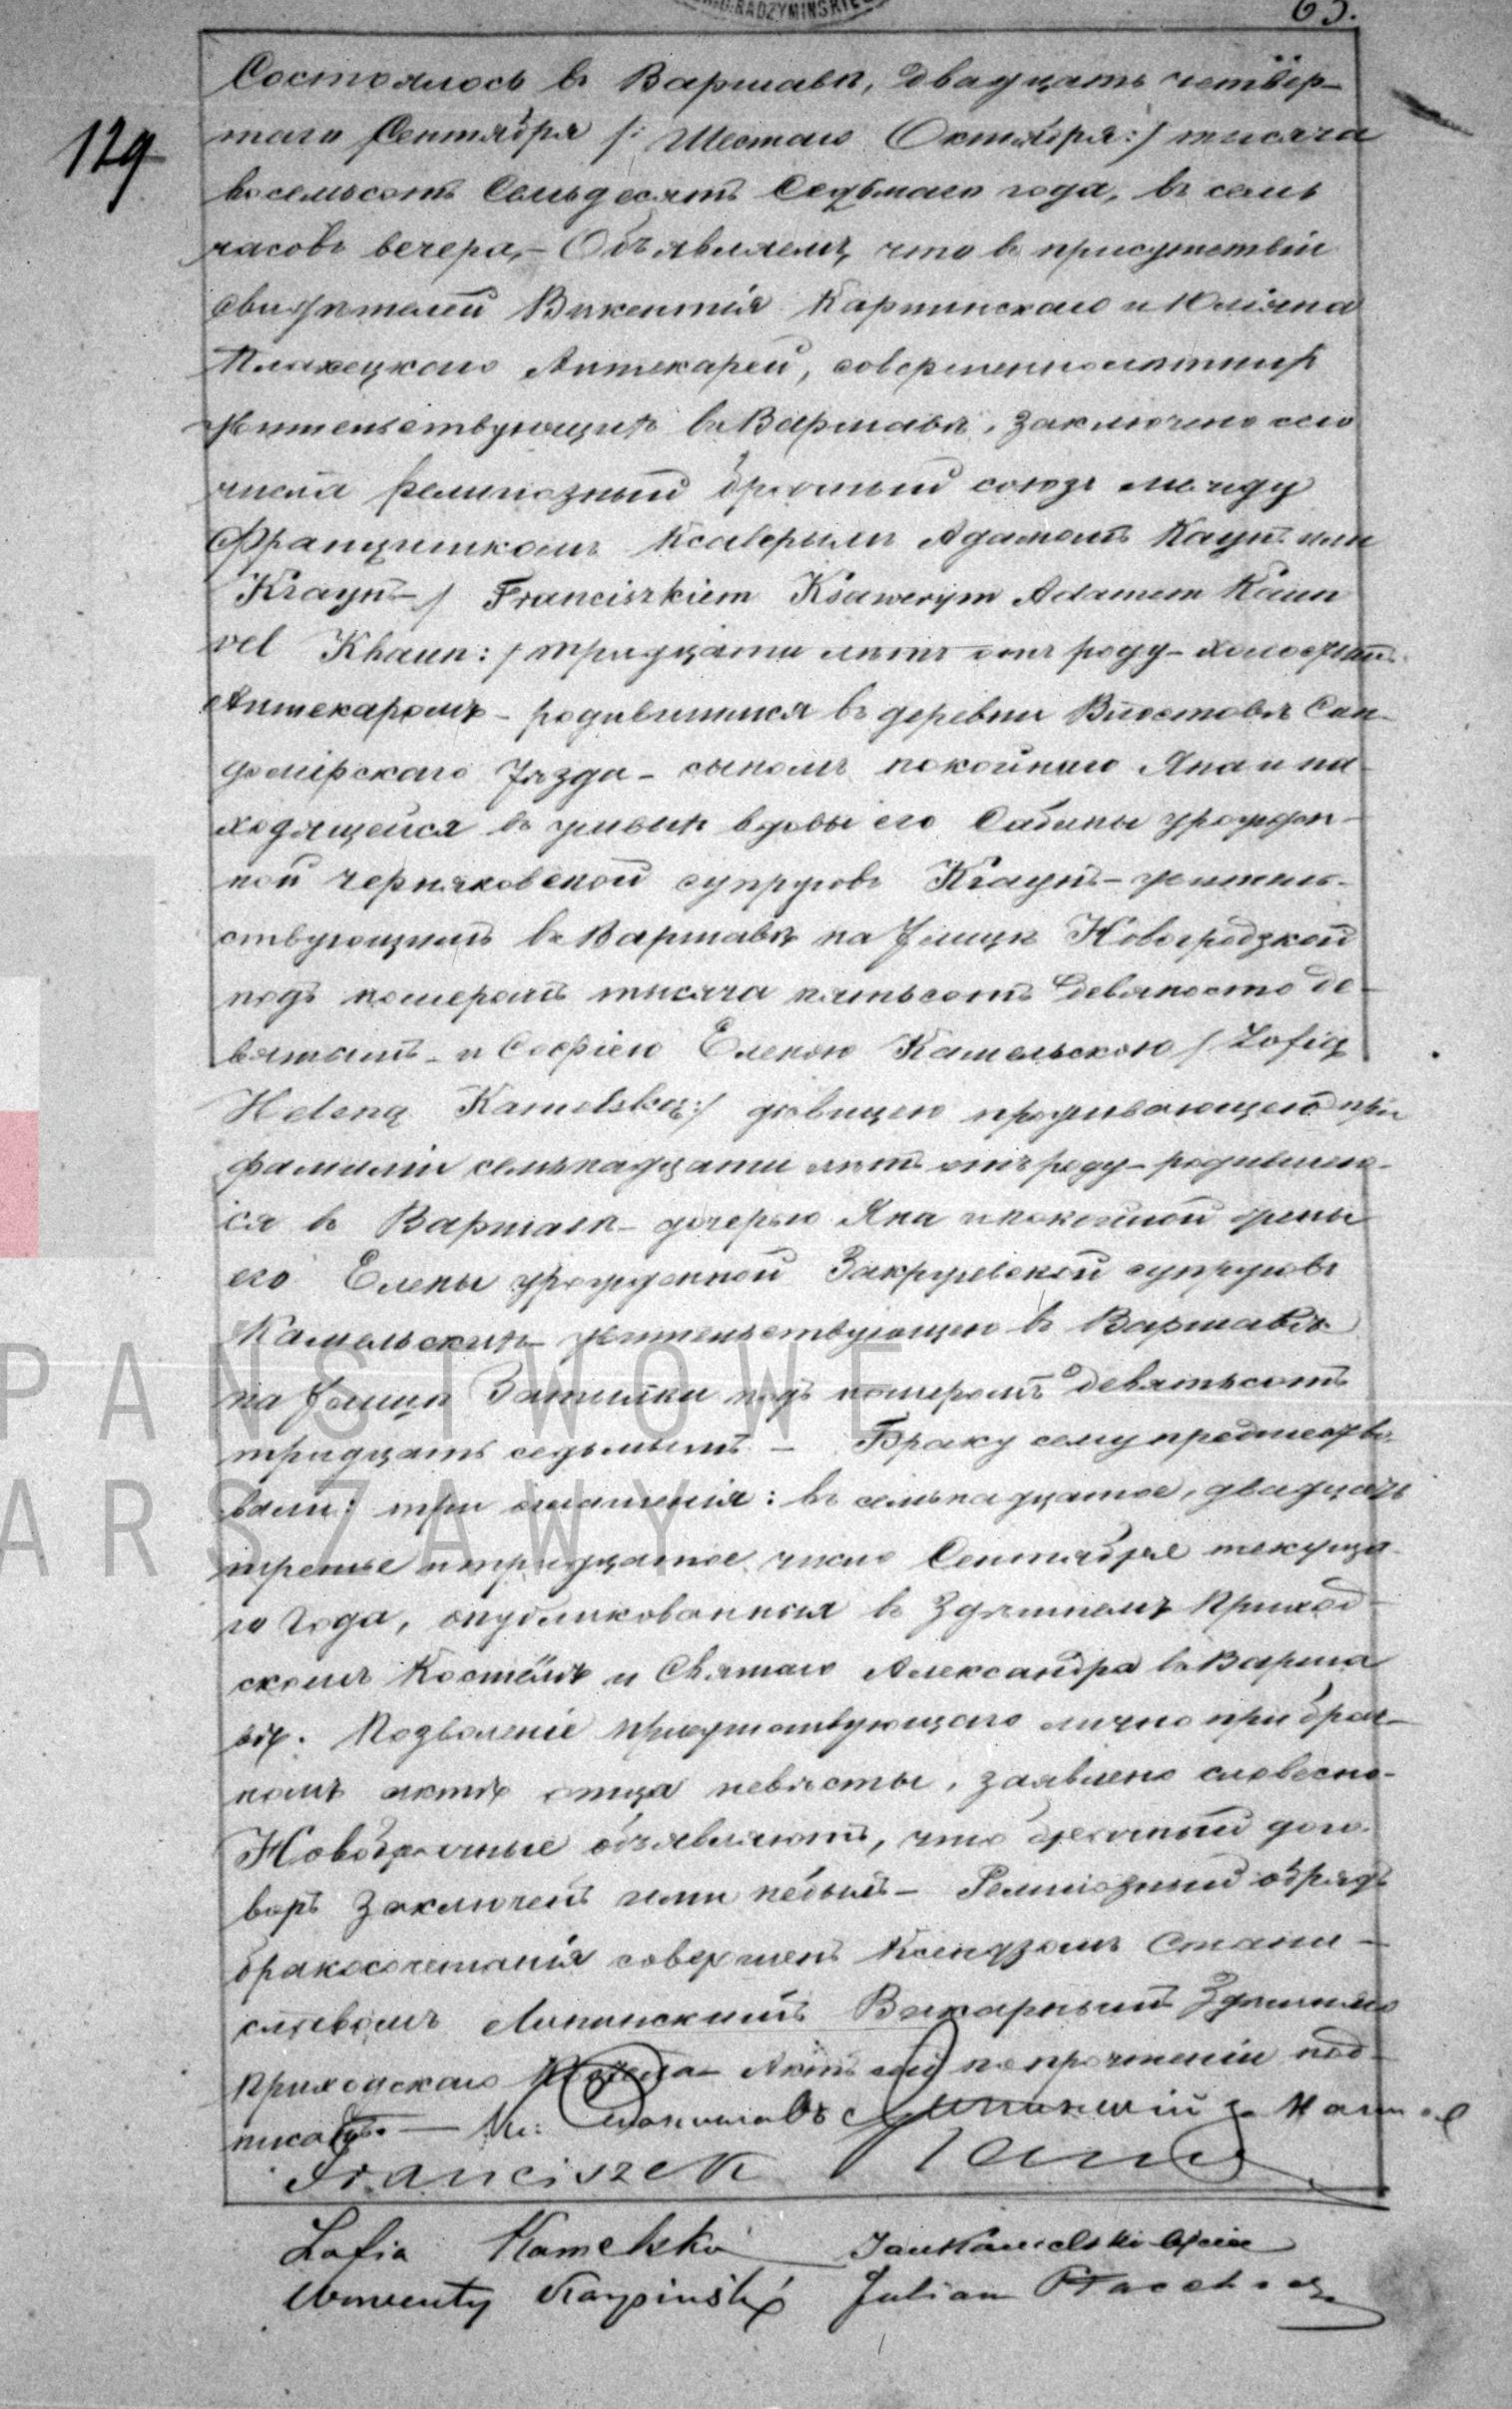 RADZYMIŃSKIE
63.
129
Состоялось въ Варшавѣ, двадцать четвёр-
таго Сентября /: Шестаго Октября :/ тысяча
восемьсотъ семьдесятъ седьмаго года, въ семь
часовъ вечера, – Объявляемъ, что въ присутствіи
свидѣтелей Викентія Карпинскаго и Юліяна
Аптекарей, совершеннолѣтнихъ
жительствующихъ въ Варшавѣ, заключено сего
числа религіозный брачный союзъ между
Францишкомъ Ксаверымъ Адамомъ Каунъ или
Кгаунъ / Franciszkiem Ksawerym Adamem Kaun
vel Khaun :/ тридцати лѣтъ отъ роду – холостымъ
Аптекаремъ – родившимся въ деревни Сан-
домірскаго Уѣзда – сыномъ покойнаго Яна и на-
ходящейся въ живыхъ вдовы его Сабины урожден-
ной Черняковской супруговъ Кгаунъ – житель-
ствующимъ въ Варшавѣ на Улицѣ Новогродзкой
подъ номеромъ тысяча пятьсотъ девяносто де-
вятымъ – и Софіею Еленою Камельскою / Zofią
Heleną Kamelską :/ дѣвицею проживающею при
фамиліи семьнадцати лѣтъ отъ роду – родившею-
ся въ Варшавѣ – дочерью Яна и покойной жены
его Елены урожденной Закржевской супруговъ
Камельскихъ – жительствующею въ Варшавѣ
на Улицѣ подъ номеромъ девятьсотъ
тридцать седьмымъ – Браку сему предшество-
вали: три оглашенія: въ семьнадцатое, двадцать
третье и тридцатое число Сентября текуща-
го года, опубликованныя въ Здѣшнемъ Приход-
скомъ Костёлѣ и Святаго Александра въ Варша-
вѣ. Позволеніе присутствующаго лично при брач-
номъ актѣ отца невѣсты, заявлено словесно –
Новобрачные объявляютъ, что брачный дого-
воръ заключенъ ими небылъ – Религіозный обрядъ
бракосочетанія совершенъ Ксендзомъ Стани-
славомъ Викарнымъ Здѣшняго
Приходскаго Костела – Актъ сей по прочтеніи под-
писанъ. – Кс: Станиславъ
Franciszek Kaun
Zofia Kamelska Jan Kamelski Ojciec
Wincenty Karpiński Julian
PAŃSTWOWE
ARSZAWY